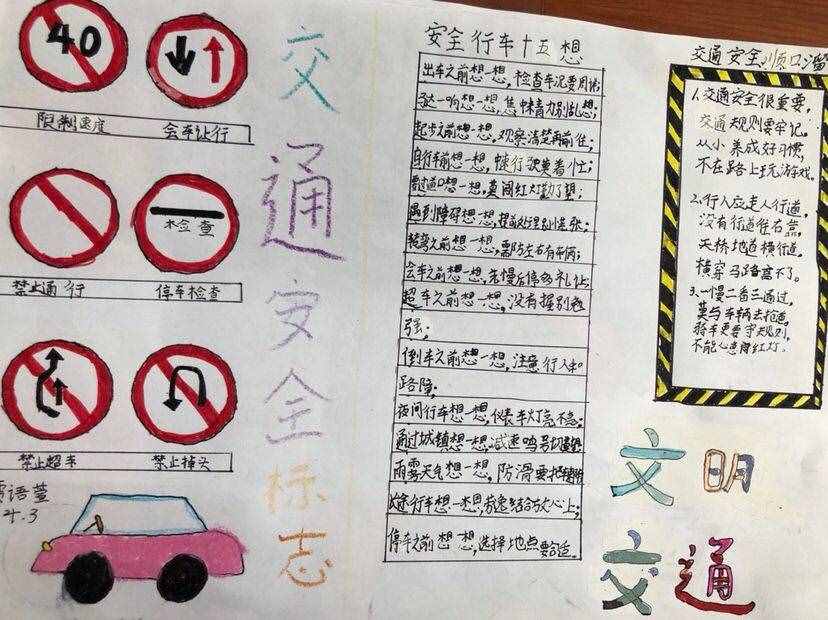 40
限制速度
会车让行
检查
禁止通行
停车检查
禁止超车
禁止掉头
语萱
4.3
交通安全标志
安全行车十五想
出车之前想一想,检查车况要周详;
马达一响想一想,集中精力别乱想;
起步之前想一想,观察清楚再前往;
自行车前想一想,中速行驶莫着忙;
要过道口想一想,莫闯红灯勤了望;
遇到障碍想一想,提前处理别慌张;
转弯之前想一想,需防左右有车辆;
会车之前想一想,先慢后停多礼让;
超车之前想一想,没有握别勉
强;
倒车之前想一想,注意行人和
路障;
夜间行车想一想,仪表车灯亮不亮;
通过城镇想一想,减速鸣号切莫望
雨雾天气想一想,防滑要
长途行车想一想,劳逸结合放心上;
停车之前想一想,选择地点要合适。
交通安全顺口溜
1、交通安全很重要,
交通规则要牢记。
从小养成好习惯,
不在路上玩游戏。
2、行人应走人行道,
没有行道往右靠,
天桥地道横行道。
横穿马路离不了。
3、一慢二看三通过,
莫与车辆去抢道。
骑车更要守规则,
不能心急闯红灯。
文明
交通